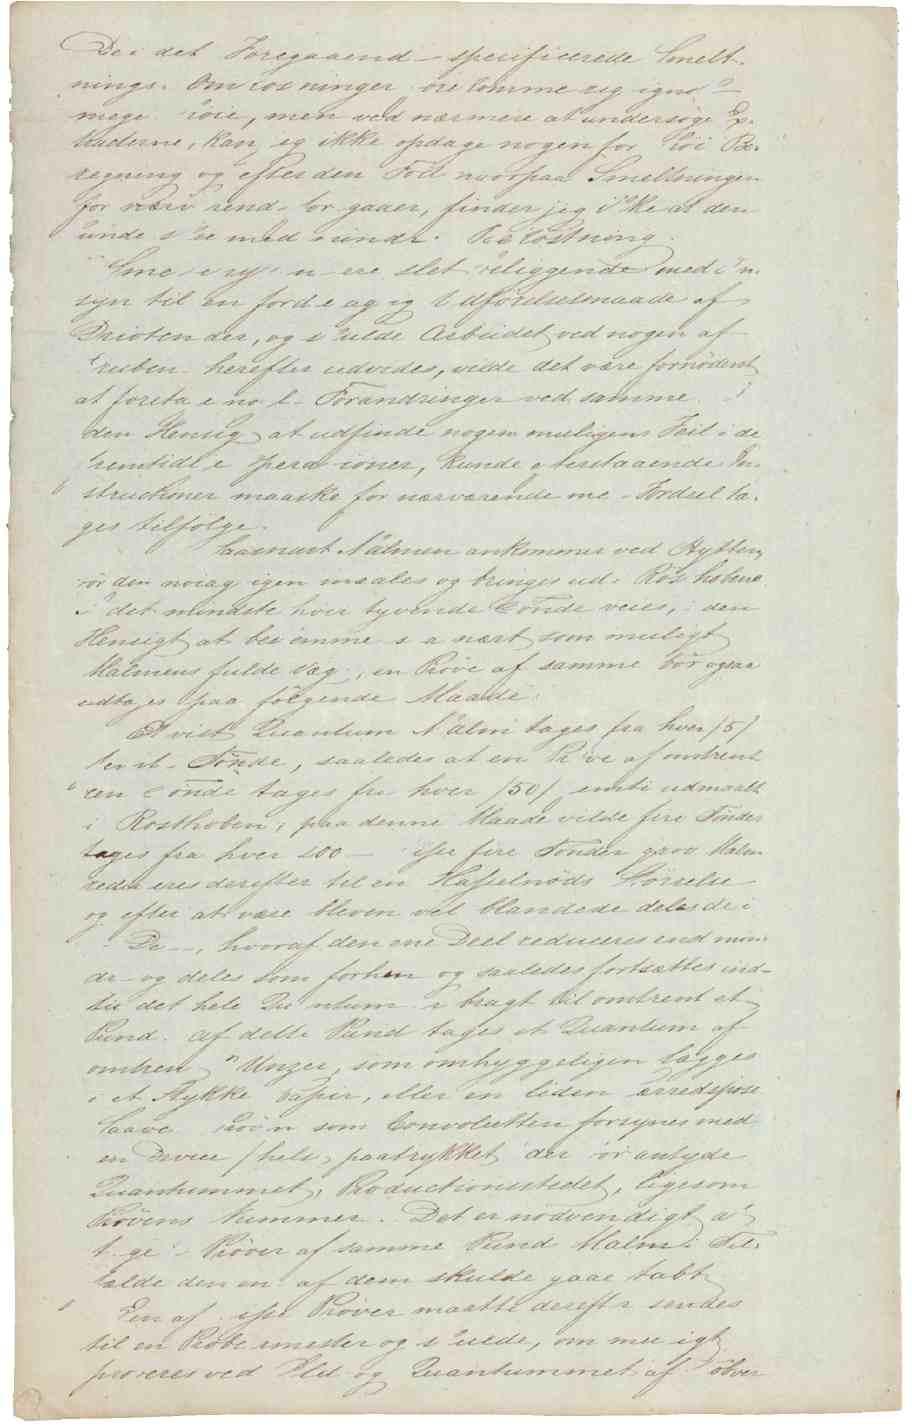 De i det Foregaaend specificerede Smelt-
nings. Omkostninger
mege høie, men ved nærmere at undersøge Ex-
tracterne, kan jeg ikke opdage nogen for høi Be-
regning og efter den Fod hvorpaa Smeltningen
for nærværende for gaaer, finder jeg ikke at den
kunde skee med mindre Bekostning.
ere slet beliggende med Hen-
syn til en fordeelagtig Udførelsesmaade af
Driften der, og skulde Arbeidet ved nogen af
Gruben herefter udvides, vilde det være fornødent
at foretage Forandringer ved samme. I
den Hensigt at udfinde nogen muligens Feil i de
fremtidige Operationer, kunde efterstaaende In-
structioner maaske for nærværende med Fordeel ta-
ges tilfølge.
Saasnart Malmen ankommer ved Hytten,
bør den nøiag igen maales og bringes ud i Rosthobene
i det mindste hver tyvende Tønde veies, i den
Hensigt at bestemme saa nært som muligt
Malmens fulde Vægt, en Prøve af samme bør ogsaa
udtages paa følgende Maade:
Et vist Quantum Malm tages fra hver /5/
Tønde, saaledes at en Prøve af omtrent
een Tønde tages fra hver /50/ udmaalt
i Rosthoben; paa denne Maade vilde fire Tønder
tages fra hver 200 — fire Tønder grov Malm
reduceres derefter til en Hasselnøds Størrelse
og efter at være bleven vel blandede deles de i
De —, hvoraf den ene Deel reduceres end min-
dre og deles som forhen og saaledes fortsættes ind-
til det hele Quantum er bragt til omtrent et
Pund. Af dette Pund tages et Quantum af
omtrent Unzer, som omhyggeligen lægges
i et Stykke Papir, eller en liden Lærredspose
Saavel Prøven som Convolutten forsynes med
en Devise / hels, paatrykket der bør antyde
Quantummet, Productionsstedet, ligesom
Prøvens Nummer. Det er nødvendigt at
tage Prøver af samme Pund Malm i Til-
fælde den en af dem skulde gaae tabt.
Een af disse Prøver maatte derefter sendes
til en Probeermester og skulde, om mueligt
proberes ved Ild og Quantummet af Sølver